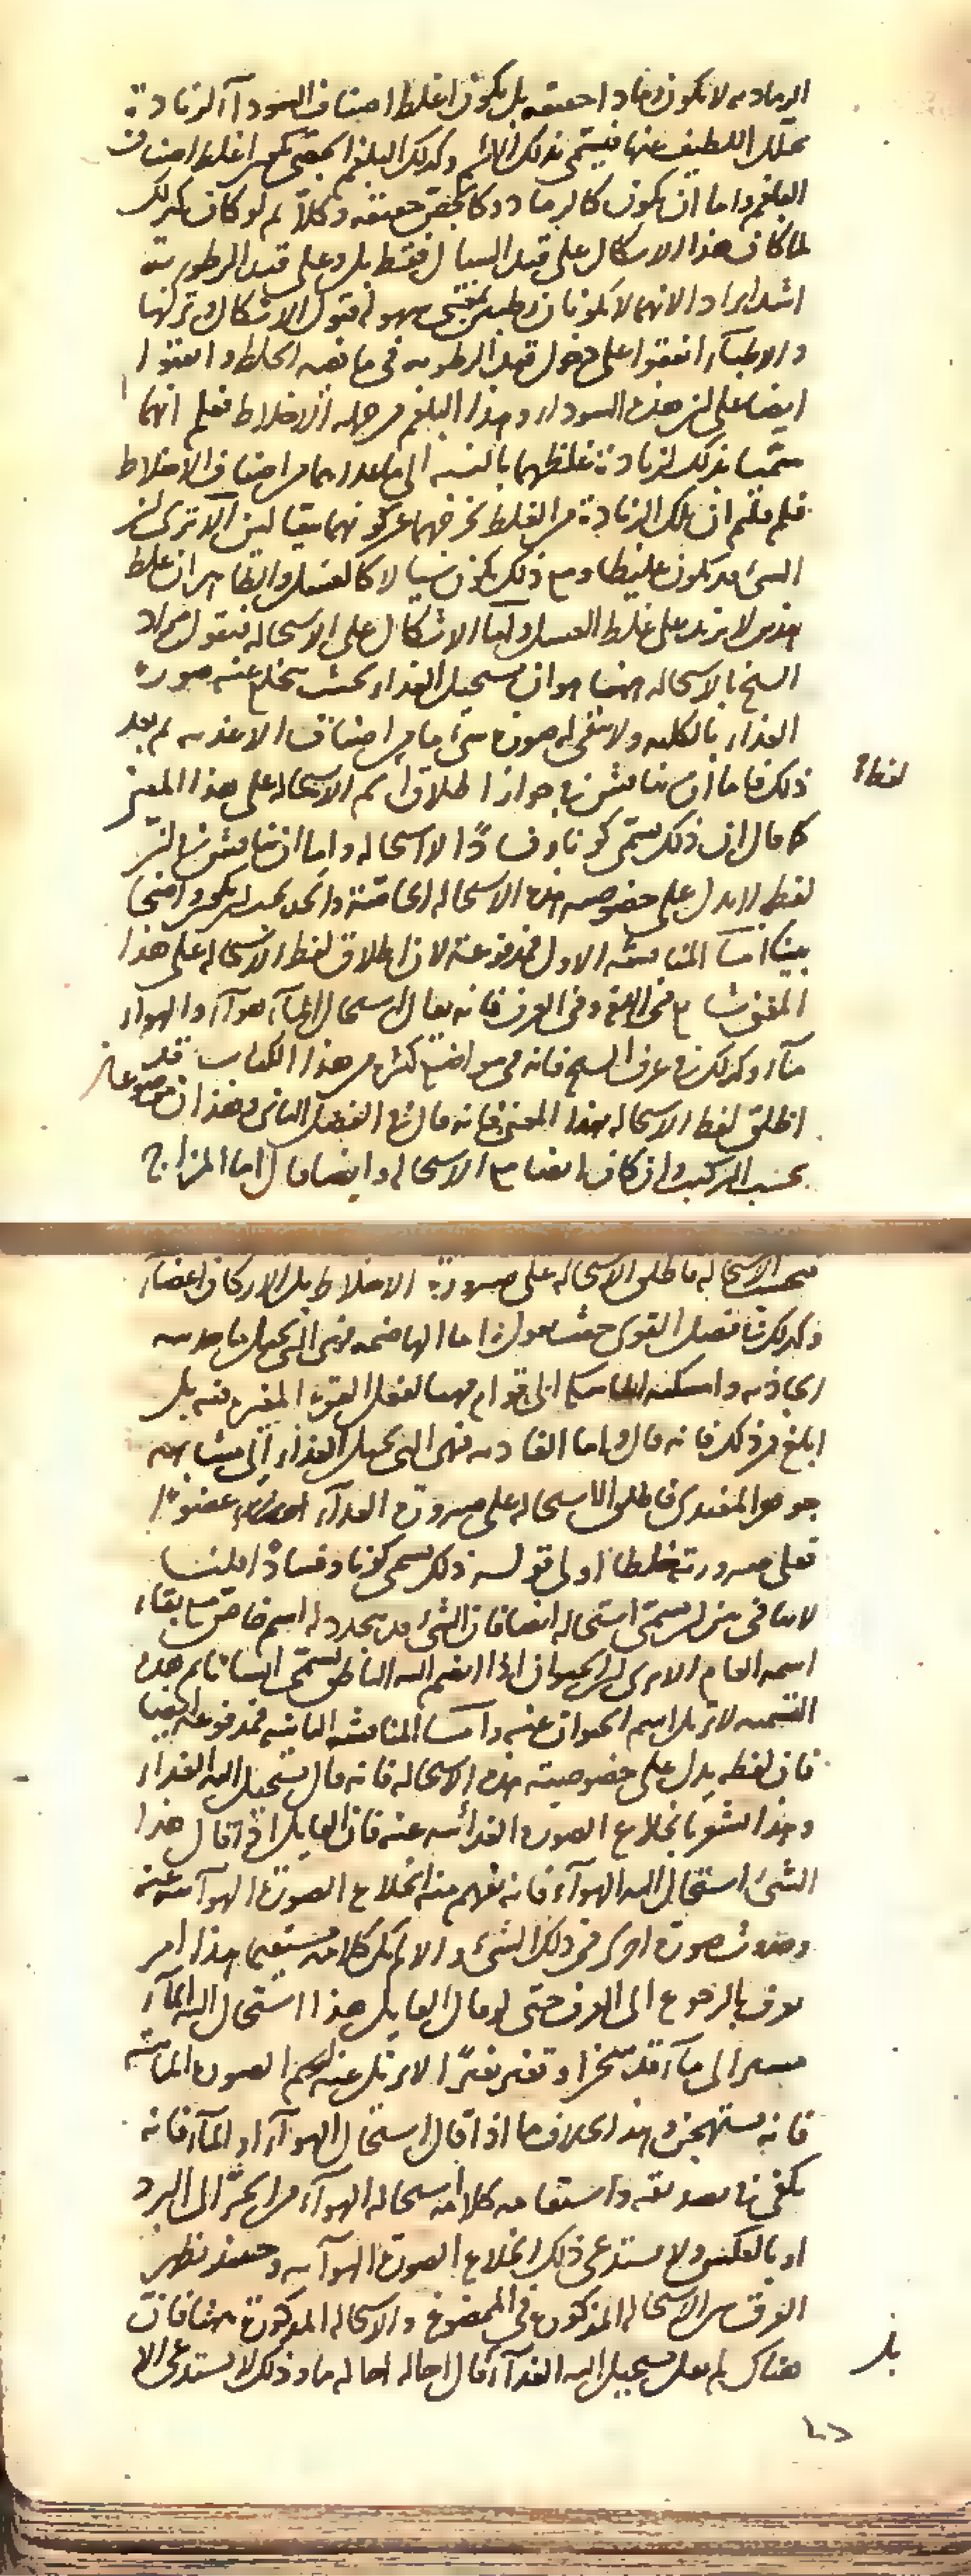 الرمادية لا تكون رمادا حقيقة بل تكون اغلظ اصناف السوداء لزيادة
تحلل اللطيف عنها فيسمى بذلك الاسم وكذلك البلغم الجصي يكون اغلظ اصناف
البلغم واما ان يكون كالرماد وكالجص حقيقة وكلا ثم لو كان كذلك
لما كان هذا الاشكال على قيد السيال فقط بل وعلى قيد الرطوبة
اشد ايرادا لانهما لا يكونان رطبين بمعنى سهولة قبول الاشكال وتركها
والاطباء اتفقوا على دخول قيد الرطوبة في ماهية الخلط واتفقوا
ايضا على ان هذه السوداء وهذا البلغم من جملة الاخلاط فعلم انهما
سميا بذلك لزيادة غلظهما بالنسبة الى ما عداهما من اصناف الاخلاط
فلم قلتم ان تلك الزيادة من الغلظ تخرجهما عن كونهما سيالين الا ترى ان
الشئ قد يكون غليظا ومع ذلك يكون سيالا كالعسل والظاهر ان غلظ
هذين لا يزيد على غلظ العسل واما الاشكال على الاستحالة فنقول مراد
الشيخ بالاستحالة ههنا هو ان يستحيل الغذاء بحيث تنخلع عنه صورة
الغذاء بالكلية ولا يبقى له صورة شئ ما من اصناف الاغذية ثم بعد
ذلك فاما ان يناقش في جواز اطلاق اسم الاستحالة على هذا المعنى
كما قال ان ذلك يسمى كونا وفسادا لا استحالة واما ان يناقش في ان
لفظه لا يدل على خصوصية هذه الاستحالة الخاصة والحد يجب ان يكون واضحا
بينا اما المناقشة الاولى فمدفوعة لان اطلاق لفظ الاستحالة على هذا
المعنى شائع في اللغة وفي العرف فانه يقال استحال الماء هواء والهواء
ماء وكذلك في عرف الشيخ فانه في مواضع كثيرة من هذا الكتاب قد
اطلق لفظ الاستحالة بهذا المعنى فانه قال في الفصل الثاني وهذان موضوعان
بحسب التركيب وان كان ايضا مع الاستحالة وايضا قال اما المزاج
لفظة
فبحسب الاستحالة فاطلق الاستحالة على صيرورة الاخلاط بل الاركان اعضاء
وكذلك في فصل القوى حيث يقول اما الهاضمة فهي التي تحيل ما جذبته
الجاذبة وامسكته الماسكة الى قوام مهيا لفعل القوة المغيرة فيه بل
ابلغ من ذلك فانه قال واما الغاذية فهي التي تحيل الغذاء الى مشابهة
جوهر المغتذي فاطلق الاستحالة على صيرورة الغذاء عضوا
فعلى صيرورته خلطا اولى قوله ذلك يسمى كونا وفسادا قلنا
لا ينافي من ان يسمى استحالة ايضا فان الشئ قد يتجدد له اسم خاص مع بقاء
اسمه العام الا ترى ان الحيوان اذا انضم اليه الناطق يسمى انسانا ثم هذه
التسمية لا تزيل اسم الحيوان عنه واما المناقشة الثانية فمدفوعة ايضا
فان لفظه يدل على خصوصية هذه الاستحالة فانه قال يستحيل اليه الغذاء
وهذا يشعر بانخلاع الصورة الغذائية عنه فان القايل اذا قال هذا
الشئ استحال اليه الهواء فانه يفهم منه انخلاع الصورة الهوائية عنه
وحدوث صورة اخرى في ذلك الشئ والا لم يكن كلامه مستقيما هذا امر
يعرف بالرجوع الى العرف حتى لو قال القايل هذا استحال اليه الماء
مشيرا الى ماء قد تسخن او تغير تغيرا لا يزيل عنه اسم الصورة المائية
فانه يستهجن وهذا بخلاف ما اذا قال استحال الهواء او الماء فانه
يكفي في تصديقه واستقامة كلامه استحالة الهواء من الحر الى البرد
او بالعكس ولا يستدعي ذلك انخلاع الصورة الهوائية وحينئذ يظهر
الفرق بين الاستحالة المذكورة في الممضوغ والاستحالة المذكورة ههنا فان
هناك لم يقل يستحيل اليه الغذاء بل قال احاله احالة ما وذلك لا يستدعي الا
بل